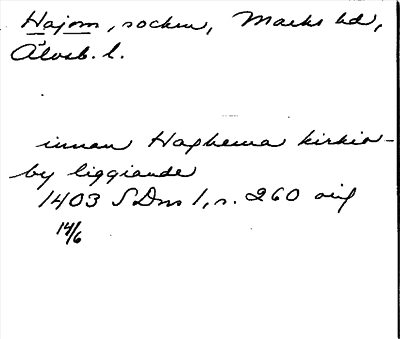 Hajom, socken, Marks hd,
Älvsb. l.
innan Haghema kirkio-
by liggiande
1403 SDns 1, s. 260 orig
14/6